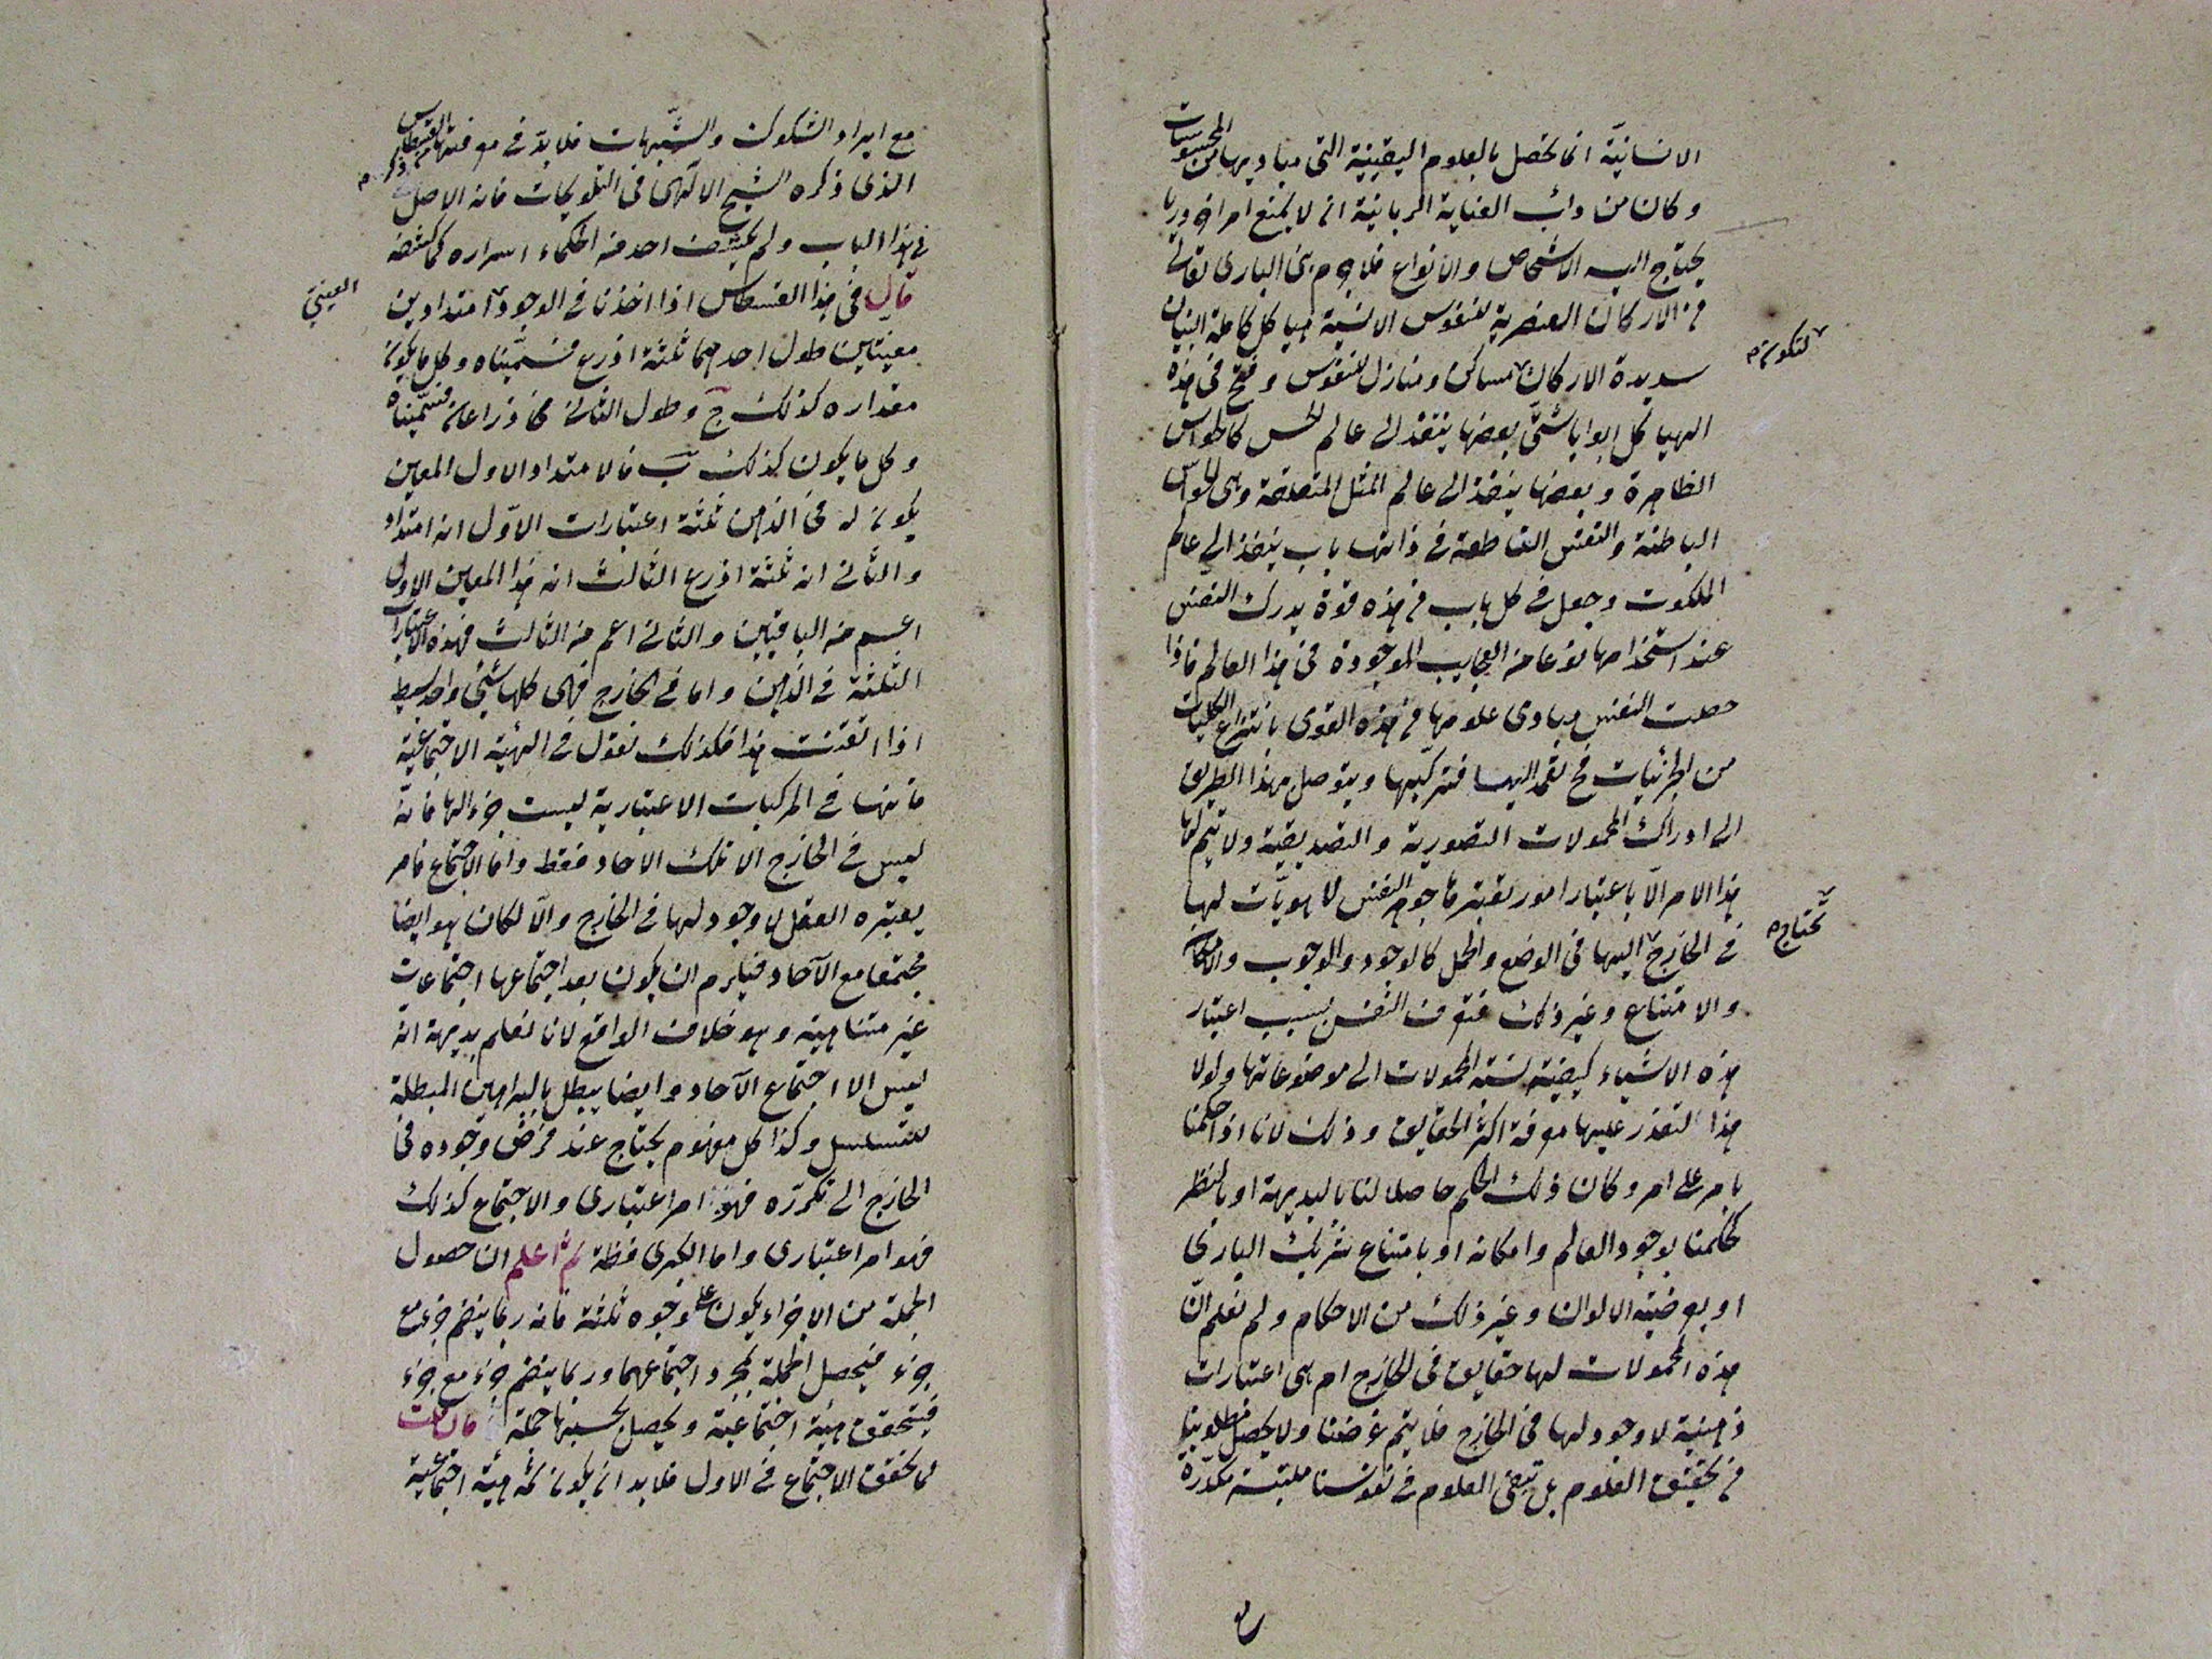 الانسانیّة انما تحصل بالعلوم الیقینیة التی مبادیها من المحسوسات
و کان من دأب العنایة الربانیة ان لا یمنع امرا ضروریا
یحتاج الیه الاشخاص والانواع فلا جرم بنی الباری تعالی
من الارکان العنصریة للنفوس الانسیة هیاکل کاملة البنیان
سدیدة الارکان لتکون مساکن و منازل للنفوس و فتح فی هذه
الهیاکل ابوابا شتّی بعضها ینفذ الی عالم الحس کالحواس
الظاهرة و بعضها ینفذ الی عالم المثل المتعلقة وهی الحواس
الباطنة والنفس الناطقة فی ذاتها باب ینفذ الی عالم
الملکوت و جعل فی کل باب من هذه قوة یدرک النفس
عند استخدامها نوعا من العجایب الموجودة فی هذا العالم فاذا
حصلت النفس مبادی علومها من هذه القوی بانتزاع الکلیات
من الجزئیات فح تعمد الیها فترکّبها و یتوصل بهذا الطریق
الی ادراک المحمولات التصوریة و التصدیقیة ولا یتم لها
هذا الامر الّا باعتبار امور تعتبرها جوهر النفس لا هویّات لها
فی الخارج یحتاج الیها فی الوضع والحمل کالوجود والوجوب والامکان
والامتناع و غیر ذلک فتعرف النفس بسبب اعتبار
هذه الاشیاء کیفیة نسبة المحمولات الی موضوعاتها ولولا
هذا لتعذر علیها معرفة اکثر الحقایق و ذلک لانا اذا حکمنا
بامر علی امر و کان ذلک الحکم حاصلا لنا بالبدیهة او بالنظر
کحکمنا بوجود العالم و امکانه او بامتناع شریک الباری
او بعرضیة الالوان و غیر ذلک من الاحکام ولم نعلم انّ
هذه المحمولات لها حقایق فی الخارج ام هی اعتبارات
ذهنیة لا وجود لها فی الخارج فلا یتم غرضنا ولا یحصل مطلوبنا
من تحقیق العلوم بل تبقی العلوم فی نفوسنا ملتبسة مکدّرة
مع ایراد الشکوک والشّبهات فلا بدّ فی معرفتها من ذکر القسطاس
الذی ذکره الشیخ الالٓهی فی التلویحات فانه الاصل
فی هذا الباب ولم یکشف احد من الحکماء اسراره کما کشفه
قال فی هذا القسطاس اذا اخذنا فی الوجود العینی امتدادین
معینین طول احدهما ثلثة اذرع فسمّیناه و کل ما یکون
مقداره کذلک ج و طول الثانی ذراعان فسمّیناه
و کل ما یکون کذلک ب فالامتداد الاول المعین
یکون له فی الذهن ثلثة اعتبارات الاوّل انه امتداد
والثانی انه ثلثة اذرع الثالث انه هذا المعین الاول
اعم من الباقیین والثانی اعم من الثالث فهذه الاعتبارات
الثلثة فی الذهن واما فی الخارج فهی کلها شیٔ واحد بسیط
اذا اتقنت هذا فکذلک نقول فی الهیئة الاجتماعیّة
فانها فی المرکبات الاعتباریة لیست جزءا لها فانّه
لیس فی الخارج الا تلک الاحاد فقط واما الاجتماع فامر
یعتبره العقل لا وجود لها فی الخارج والّا لکان هو ایضا
مجتمعا مع الآحاد فیلزم ان یکون بعد اجتماعها اجتماعات
غیر متناهیة و هو خلاف الواقع لانا نعلم بدیهة انّه
لیس الا اجتماع الآحاد و ایضا یبطل بالبراهین المبطلة
للتسلسل و کذا کل مفهوم یحتاج عند فرض وجوده فی
الخارج الی تکرّره فهو امر اعتباری والاجتماع کذلک
فهو امر اعتباری واما الکبری فظة ثم اعلم ان حصول
الجملة من الاجزاء یکون علی وجوه ثلثة فانه ربما ینضم جزء مع
جزء فیحصل الجملة بمجرد اجتماعهما و ربما ینضم جزء مع جزء
فیتحقق هیئة اجتماعیة و یحصل بحسبها جملة فان قلت
لما تحقق الاجتماع فی الاول فلا بد ان یکون ثمه هیئة اجتماعیة